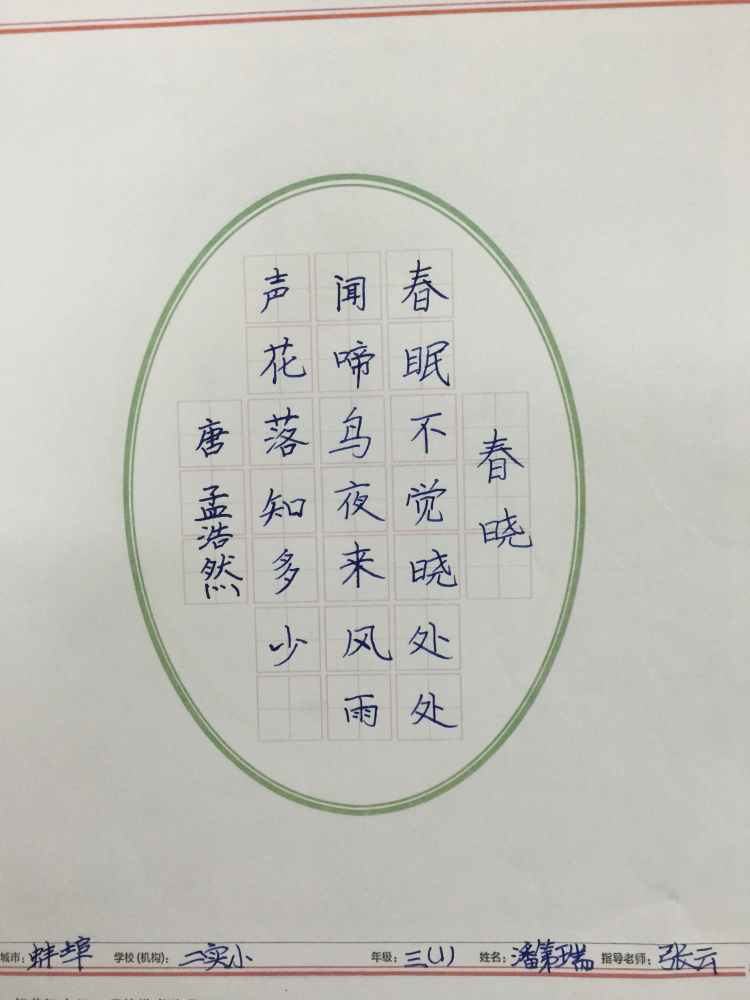 春晓
春眠不觉晓处处
闻啼鸟夜来风雨
声花落知多少
唐 孟浩然
城市: 蚌埠 学校(机构): 二实小 年级: 三(1) 姓名: 潘第瑞 指导老师: 张云